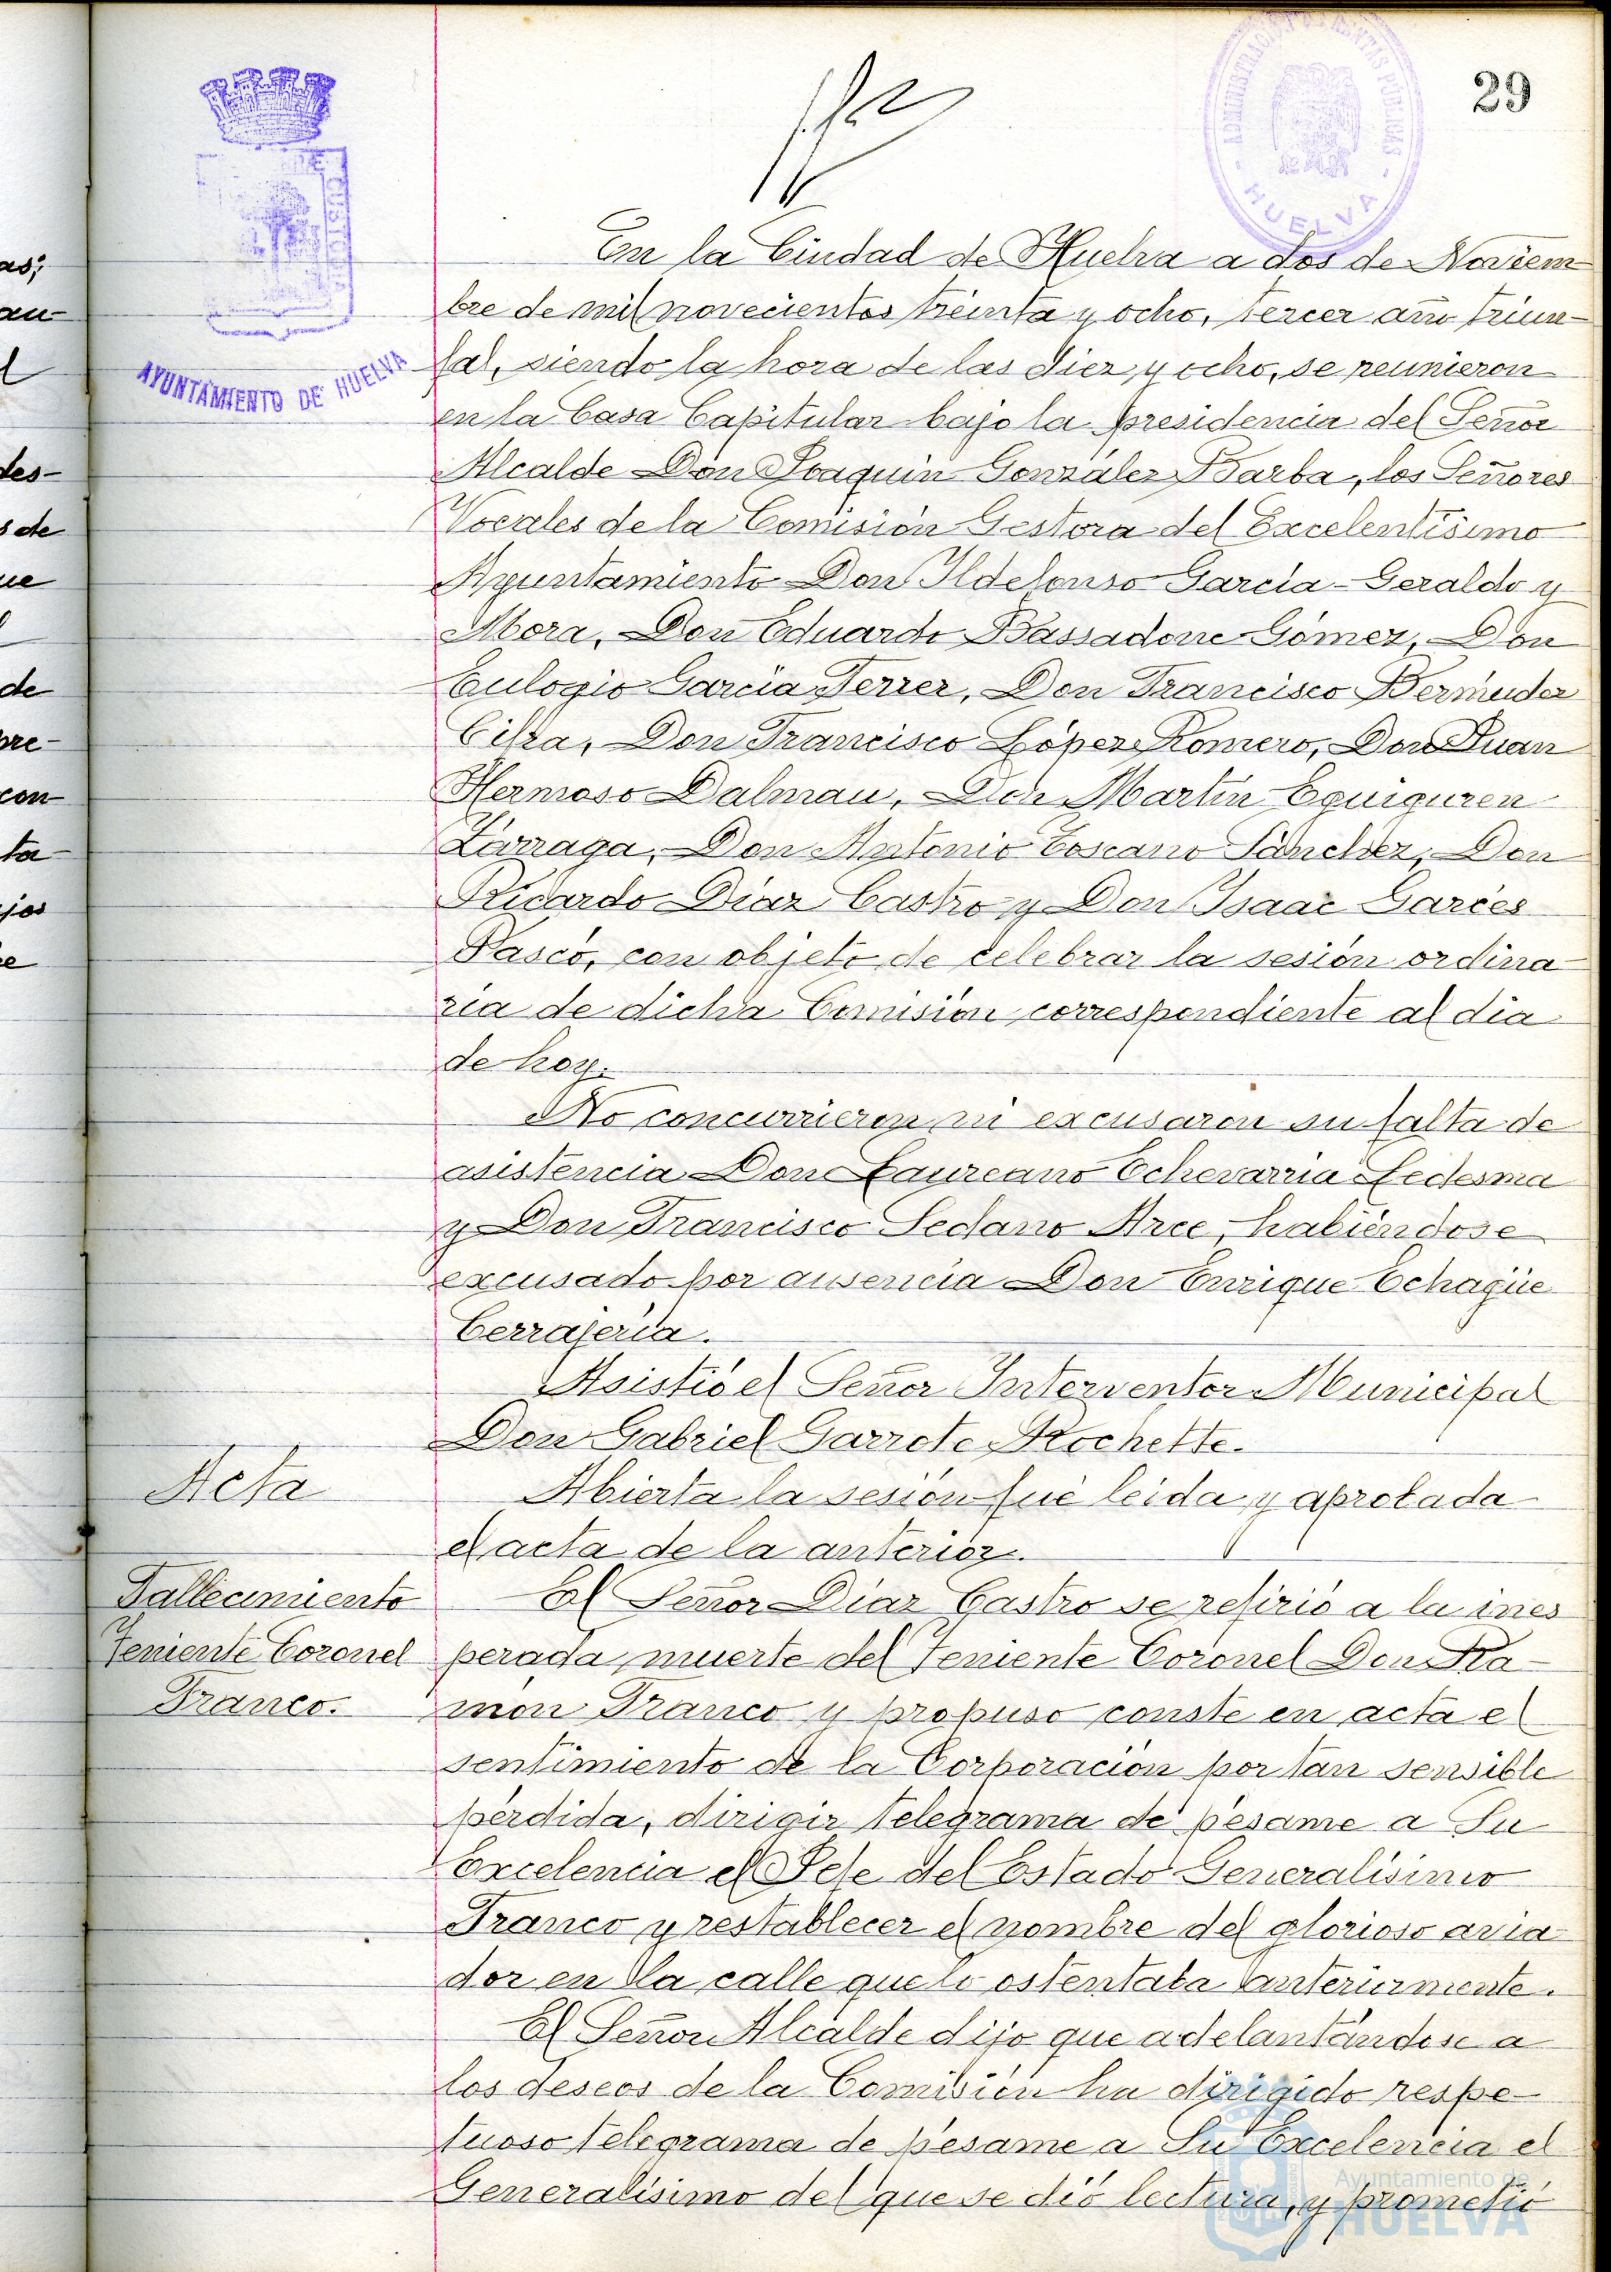 29
ADMINISTRACIÓN DE RENTAS PUBLICAS
HUELVA
AYUNTAMIENTO DE HUELVA
En la Ciudad de Huelva a dos de Noviem-
bre de mil novecientos treinta y ocho, tercer año triun-
fal, siendo la hora de las diez y ocho, se reunieron
en la Casa Capitular bajo la presidencia del Señor
Alcalde Don Joaquín González Barba, los Señores
Vocales de la Comisión Gestora del Excelentísimo
Ayuntamiento Don Ildefonso García-Geraldo y
Mora, Don Eduardo Bassadone Gómez, Don
Eulogio García Ferrer, Don Francisco Bermúdez
Cifra, Don Francisco López Romero, Don Juan
Hermoso Dalmau, Don Martín Eguiguren
Zárraga, Don Antonio Toscano Sánchez, Don
Ricardo Díaz Castro y Don Isaac Garcés
Pascó, con objeto de celebrar la sesión ordina-
ria de dicha Comisión correspondiente al día
de hoy.
No concurrieron ni excusaron su falta de
asistencia Don Laureano Echevarría Ledesma
y Don Francisco Sedano Arce, habiéndose
excusado por ausencia Don Enrique Echagüe
Cerrajería.
Asistió el Señor Interventor Municipal
Don Gabriel Garrote Rochette.
Acta
Abierta la sesión fué leida y aprobada
el acta de la anterior.
Fallecimiento
Teniente Coronel
Franco.
El Señor Díaz Castro se refirió a la ines
perada muerte del Teniente Coronel Don Ra-
món Franco y propuso conste en acta el
sentimiento de la Corporación por tan sensible
pérdida, dirigir telegrama de pésame a Su
Excelencia el Jefe del Estado Generalísimo
Franco y restablecer el nombre del glorioso avia-
dor en la calle que lo ostentaba anteriormente.
El Señor Alcalde dijo que adelantándose a
los deseos de la Comisión ha dirigido respe-
tuoso telegrama de pésame a Su Excelencia el
Generalísimo del que se dió lectura, y prometió
Ayuntamiento de
HUELVA
as;
au-
des-
s de
ue
de
pre-
con-
ta-
jos